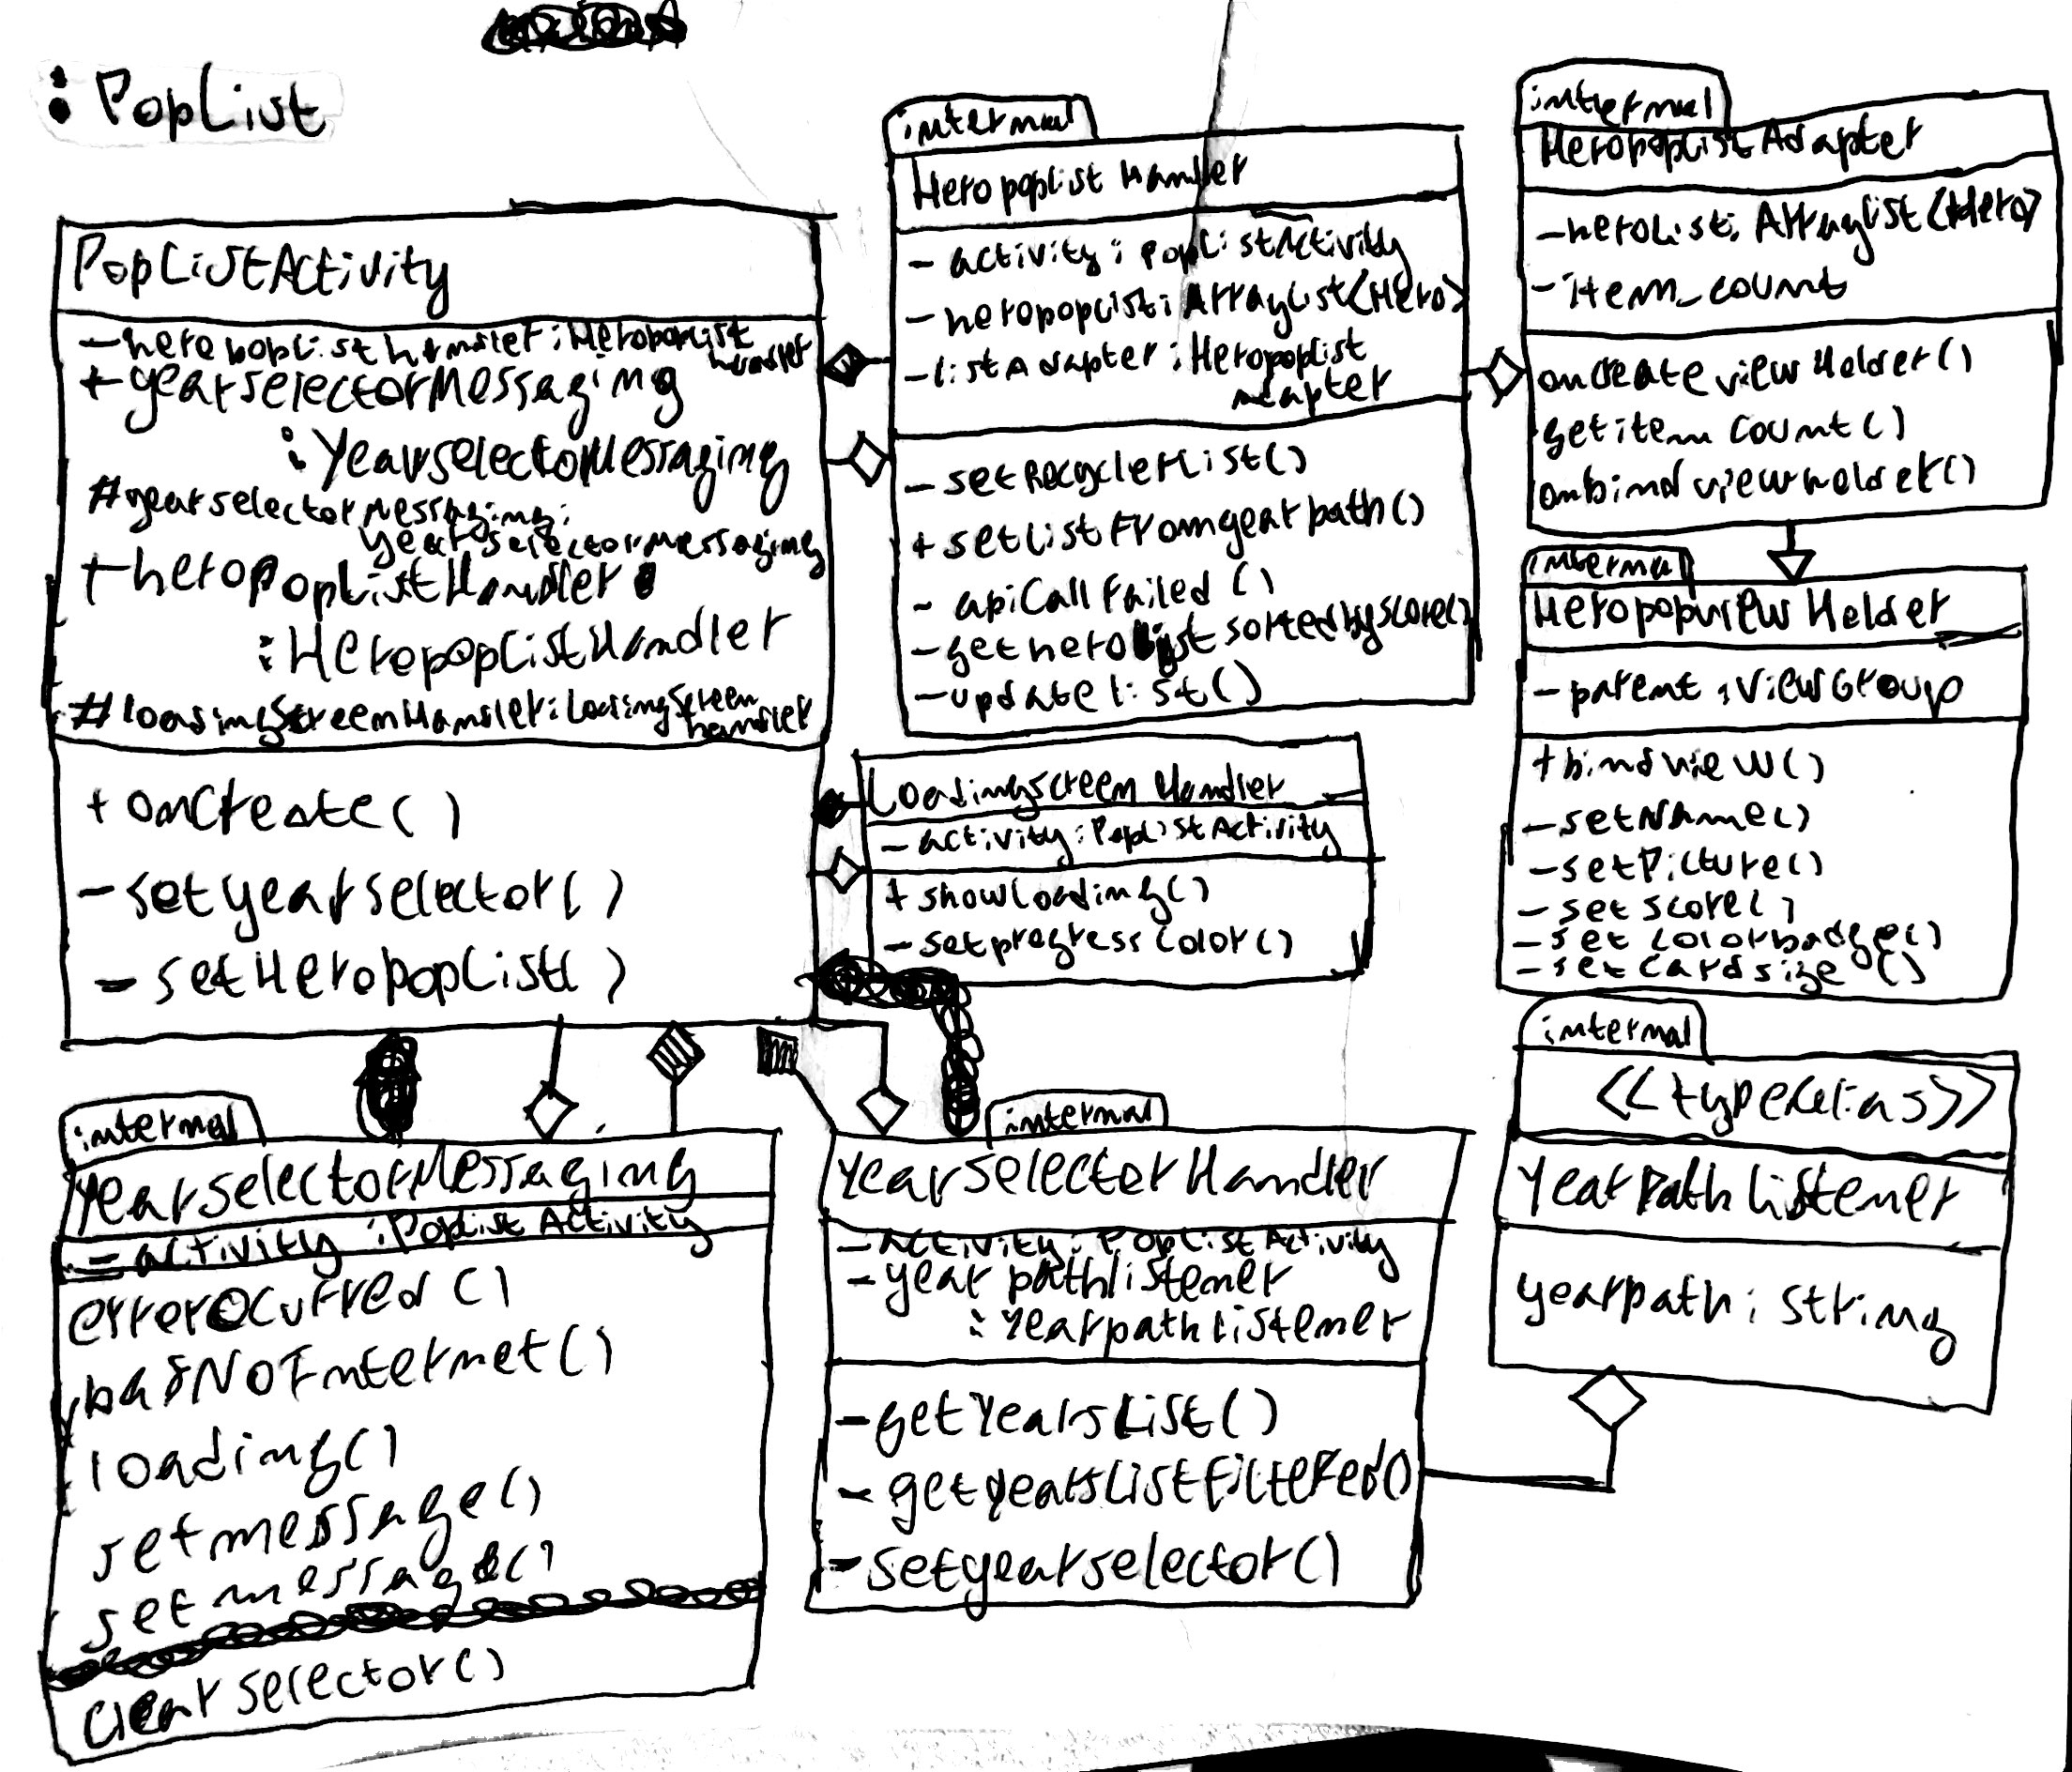 : PopList
PopListActivity
-heropoplisthandler:Heropoplist
handler
+yearselectorMessaging
:YearselectorMessaging
#yearselectormessaging:
yearselectormessaging
+heropoplistHandler
:HeropoplistHandler
#loadingscreenHandler:Loadingscreen
handler
+onCreate()
-setyearselector()
-setHeropoplist()
internal
Heropoplist Handler
-activity:PoplistActivity
-heropoplist:Arraylist<Hero>
-listAdapter:Heropoplist
Adapter
-setRecyclerlist()
+setlistfromyearpath()
-apiCallFailed()
-getherolistsortedbyscore()
-updatelist()
internal
HeropoplistAdapter
-herolist:Arraylist<Hero>
-item_count
oncreateviewHolder()
getitemcount()
onbindviewholder()
internal
HeropopviewHolder
-parent:viewGroup
+bindview()
-setName()
-setPicture()
-setscore()
-setcolorbadge()
-setcardsize()
Loadingscreen Handler
-activity:PoplistActivity
+showloading()
-setprogresscolor()
internal
<<typealias>>
YearPathlistener
yearpath:string
internal
YearselectorMessaging
-activity:PoplistActivity
errorocurred()
hasNoInternet()
loading()
setmessage()
setmessage()
clearselector()
internal
YearselectorHandler
-activity:PoplistActivity
-yearpathlistener
:yearpathlistener
-getYearsList()
-getyearslistfiltered()
-setyearselector()